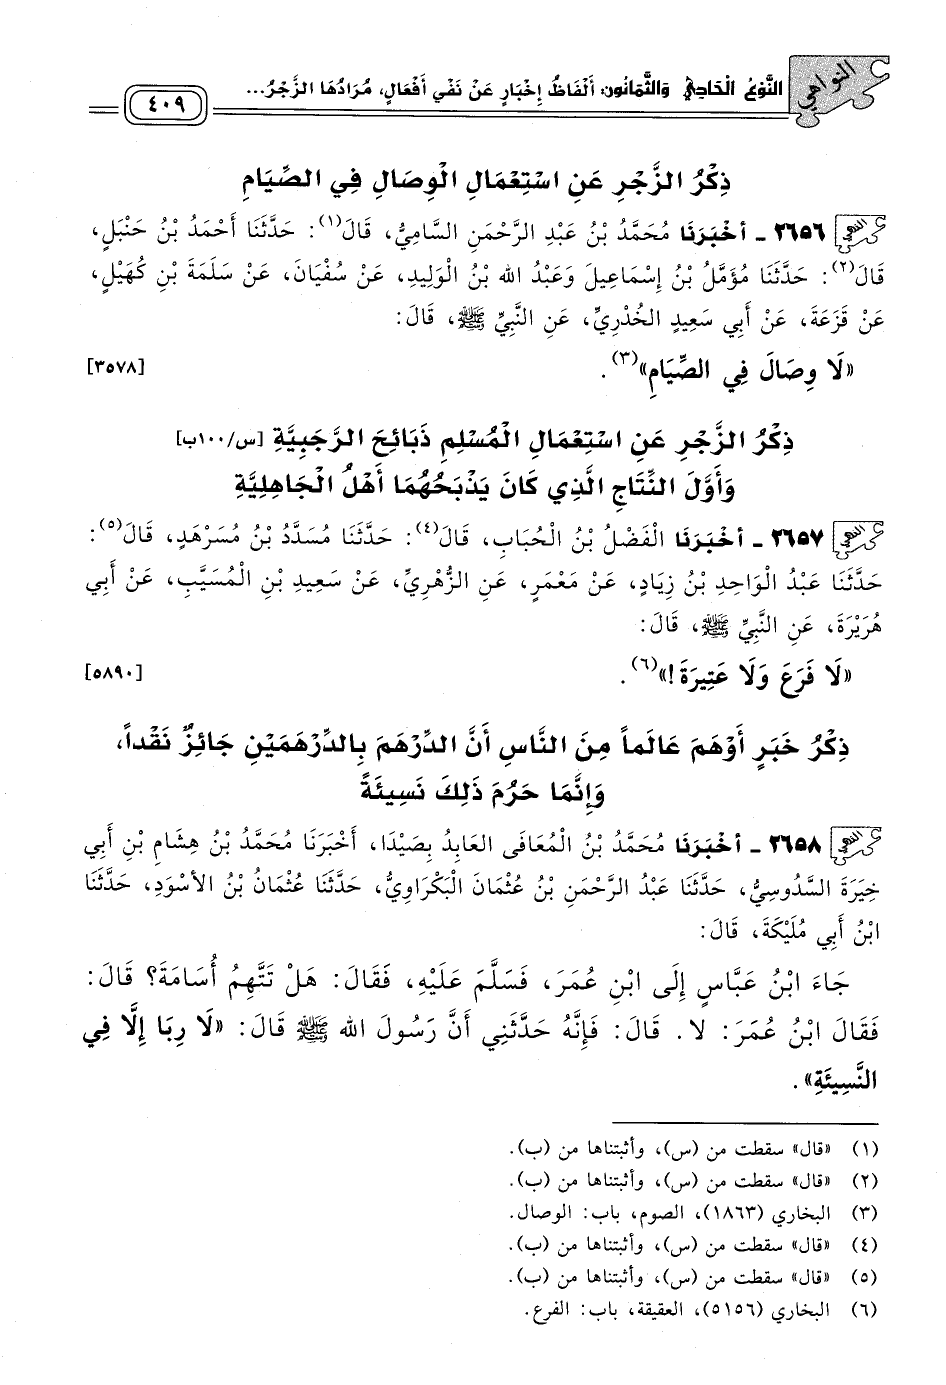 النواهي
النَّوْعُ الْحَادِي وَالثَّمَانُون: أَلْفَاظُ إِخْبَارٍ عَنْ نَفْي أَفْعَالٍ، مُرَادُهَا الزَّجْرُ...
٤٠٩
ذِكْرُ الزَّجْرِ عَنِ اسْتِعْمَالِ الْوِصَالِ فِي الصِّيَامِ
النهي ٢٦٥٦ ـ أخْبَرَنَا مُحَمَّدُ بْنُ عَبْدِ الرَّحْمَنِ السَّامِيُّ، قَالَ(١): حَدَّثَنَا أَحْمَدُ بْنُ حَنْبَلٍ،
قَالَ(٢): حَدَّثَنَا مُؤَمَّلُ بْنُ إِسْمَاعِيلَ وَعَبْدُ الله بْنُ الْوَلِيدِ، عَنْ سُفْيَانَ، عَنْ سَلَمَةَ بْنِ كُهَيْلٍ،
عَنْ قَزَعَةَ، عَنْ أَبِي سَعِيدٍ الخُدْرِيِّ، عَنِ النَّبِيِّ ﷺ، قَالَ:
«لَا وِصَالَ فِي الصِّيَامِ»(٣). [٣٥٧٨]
ذِكْرُ الزَّجْرِ عَنِ اسْتِعْمَالِ الْمُسْلِمِ ذَبَائِحَ الرَّجَبِيَّةِ [س/١٠٠ب]
وَأَوَّلَ النِّتَاجِ الَّذِي كَانَ يَذْبَحُهُمَا أَهْلُ الْجَاهِلِيَّةِ
النهي ٢٦٥٧ ـ أخْبَرَنَا الْفَضْلُ بْنُ الْحُبَابِ، قَالَ(٤): حَدَّثَنَا مُسَدَّدُ بْنُ مُسَرْهَدٍ، قَالَ(٥):
حَدَّثَنَا عَبْدُ الْوَاحِدِ بْنُ زِيَادٍ، عَنْ مَعْمَرٍ، عَنِ الزُّهْرِيِّ، عَنْ سَعِيدِ بْنِ الْمُسَيَّبِ، عَنْ أَبِي
هُرَيْرَةَ، عَنِ النَّبِيِّ ﷺ، قَالَ:
«لَا فَرَعَ وَلَا عَتِيرَةَ!»(٦). [٥٨٩٠]
ذِكْرُ خَبَرٍ أَوْهَمَ عَالَماً مِنَ النَّاسِ أَنَّ الدِّرْهَمَ بِالدِّرْهَمَيْنِ جَائِزٌ نَقْداً،
وَإِنَّمَا حَرُمَ ذَلِكَ نَسِيئَةً
النهي ٢٦٥٨ ـ أخْبَرَنَا مُحَمَّدُ بْنُ الْمُعَافَى العَابِدُ بِصَيْدَا، أَخْبَرَنَا مُحَمَّدُ بْنُ هِشَامِ بْنِ أَبِي
خِيَرَةَ السَّدُوسِيُّ، حَدَّثَنَا عَبْدُ الرَّحْمَنِ بْنُ عُثْمَانَ الْبَكْرَاوِيُّ، حَدَّثَنَا عُثْمَانُ بْنُ الأَسْوَدِ، حَدَّثَنَا
ابْنُ أَبِي مُلَيْكَةَ، قَالَ:
جَاءَ ابْنُ عَبَّاسٍ إِلَى ابْنِ عُمَرَ، فَسَلَّمَ عَلَيْهِ، فَقَالَ: هَلْ تَتَّهِمُ أُسَامَةَ؟ قَالَ:
فَقَالَ ابْنُ عُمَرَ: لَا. قَالَ: فَإِنَّهُ حَدَّثَنِي أَنَّ رَسُولَ الله ﷺ قَالَ: «لَا رِبَا إِلَّا فِي
النَّسِيئَةِ».
(١) «قال» سقطت من (س)، وأثبتناها من (ب).
(٢) «قال» سقطت من (س)، وأثبتناها من (ب).
(٣) البخاري (١٨٦٣)، الصوم، باب: الوصال.
(٤) «قال» سقطت من (س)، وأثبتناها من (ب).
(٥) «قال» سقطت من (س)، وأثبتناها من (ب).
(٦) البخاري (٥١٥٦)، العقيقة، باب: الفرع.